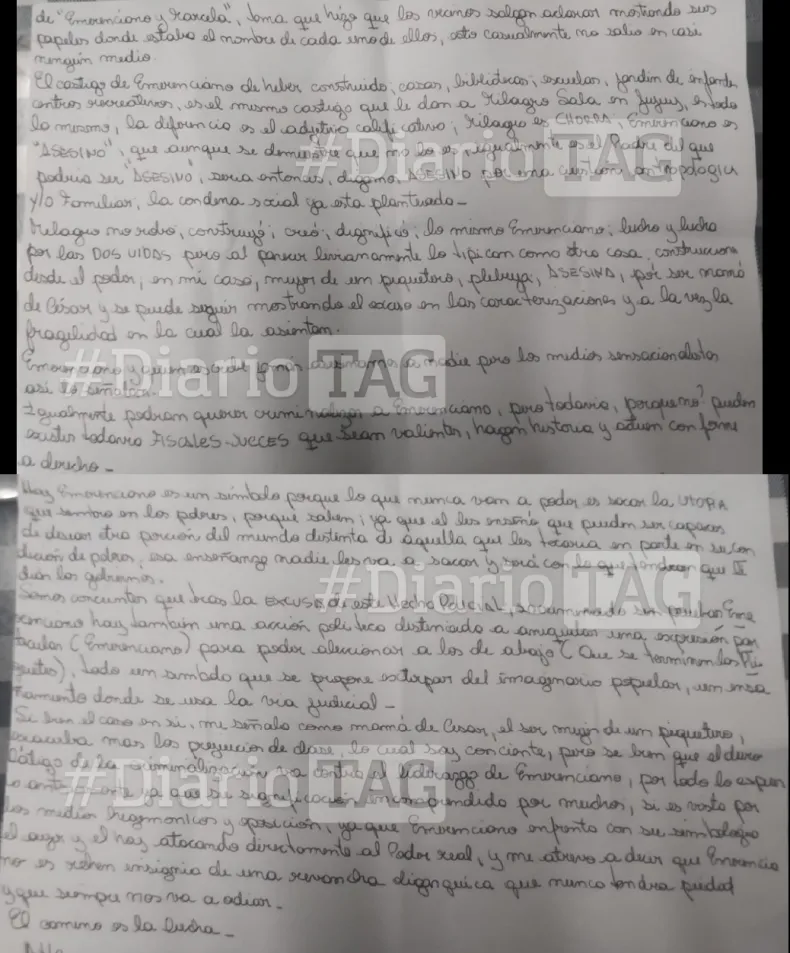 de "Emerenciano y Marcela", tema que hizo que los vecinos salgan aclarar mostrando sus
papeles donde estaba el nombre de cada uno de ellos, esto casualmente no salio en casi
ningún medio.
El castigo de Emerenciano de haber construido; casas, bibliotecas; escuelas, jardin de infantes,
centros recreativos, es el mismo castigo que le dan a Milagro Sala en Jujuy, es todo
lo mismo, la diferencia es el adjetivo calificativo; Milagro es CHORRA, Emerenciano es
"ASESINO", que aunque se demuestre que no lo es igualmente es el Padre del que
podria ser "ASESINO", seria entonces, digamos, ASESINO por una cuestion antropologica
y/o Familiar, la condena social ya esta planteada -
Milagro no robo, construyó; creó, dignificó; lo mismo Emerenciano; lucho y lucha
por las DOS VIDAS pero al parecer livianamente lo tipican como otra cosa, construccion
desde el poder, en mi caso, mujer de un piquetero, plebeya, ASESINA, por ser mamá
de César y se puede seguir mostrando el exceso en las caracterizaciones y a la vez la
fragilidad en la cual la asientan.
Emerenciano y quien escribe jamás asesinamos a nadie pero los medios sensacionalistas
asi lo señalan.
Igualmente podran querer criminalizar a Emerenciano, pero todavia, porque no? pueden
existir todavia FISCALES-JUECES que sean valientes, hagan historia y actuen conforme
a derecho -
Hoy Emerenciano es un simbolo porque lo que nunca van a poder es sacar la UTOPIA
que sembro en los pobres, porque saben; ya que el les enseñó que pueden ser capaces
de desear otra porción del mundo distinta de aquella que les tocaria en parte en su con
dición de pobres, esa enseñanza nadie les va a sacar y será con lo que tendran que
lidiar los gobiernos.
Somos concientes que tras la EXCUSA de este Hecho Policial, incriminado sin pruebas Eme
renciano hay tambien una acción politica destinada a aniquilar una expresión par
ticular (Emerenciano) para poder aleccionar a los de abajo (Que se terminen los Pi
quetes), todo un simbolo que se propone extirpar del imaginario popular, un ensa
ñamiento donde se usa la via judicial -
Si bien el caso en si, me señala como mamá de Cesar, el ser mujer de un piquetero,
exacerba mas los prejuicios de clase, lo cual soy conciente, pero se bien que el duro
látigo de la criminalización va contra el liderazgo de Emerenciano, por todo lo expues
to anteriormente ya que su significación incomprendido por muchos, si es visto por
los medios hegemonicos y oposición, ya que Emerenciano enfrento con su simbologia
el ayer y el hoy atacando directamente al Poder real, y me atrevo a decir que Emerencia
no es rehen insignia de una revancha oligarquica que nunca tendra piedad
y que siempre nos va a odiar -
El camino es la lucha -
#Diario TAG
#Diario TAG
#Diario TAG
#Diario TAG